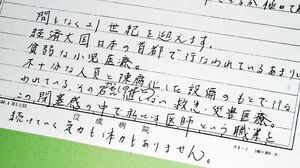 間もなく21世紀を迎えます。
経済大国日本の首都で行なわれているあまりに
貧弱な小児医療。
不十分な人員と陳腐化した設備のもとで行な
われている、その名に値しない救急・災害医療。
この閉塞感の中で私には医師という職業を
続けていく気力も体力もありません。